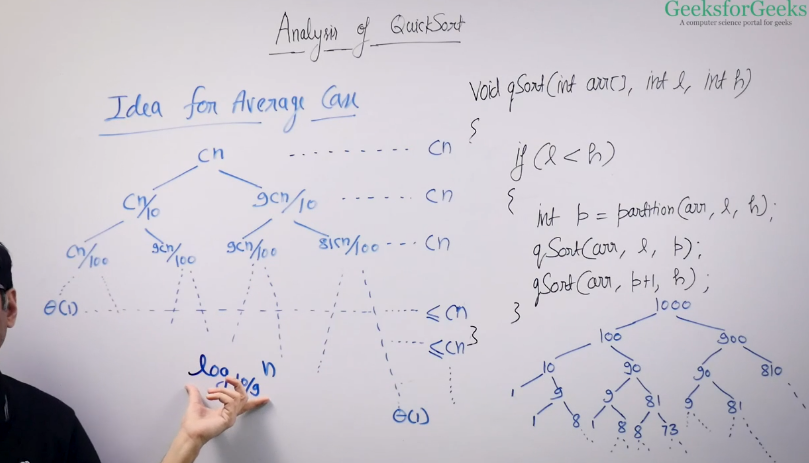 GeeksforGeeks
A computer science portal for geeks
Analysis of QuickSort
Idea for Average Case
cn ---------- cn
cn/10 9cn/10 ------ cn
cn/100 9cn/100 9cn/100 81cn/100 --- cn
θ(1) ---------- ≤ cn
≤ cn
log 10/9 n
θ(1)
void qSort(int arr[], int l, int h)
{
if (l < h)
{
int p = partition(arr, l, h);
qSort(arr, l, p);
qSort(arr, p+1, h);
}
}
1000
100 900
10 90 90 810
1 9 9 81 9 81
1 8 1 8 8 73